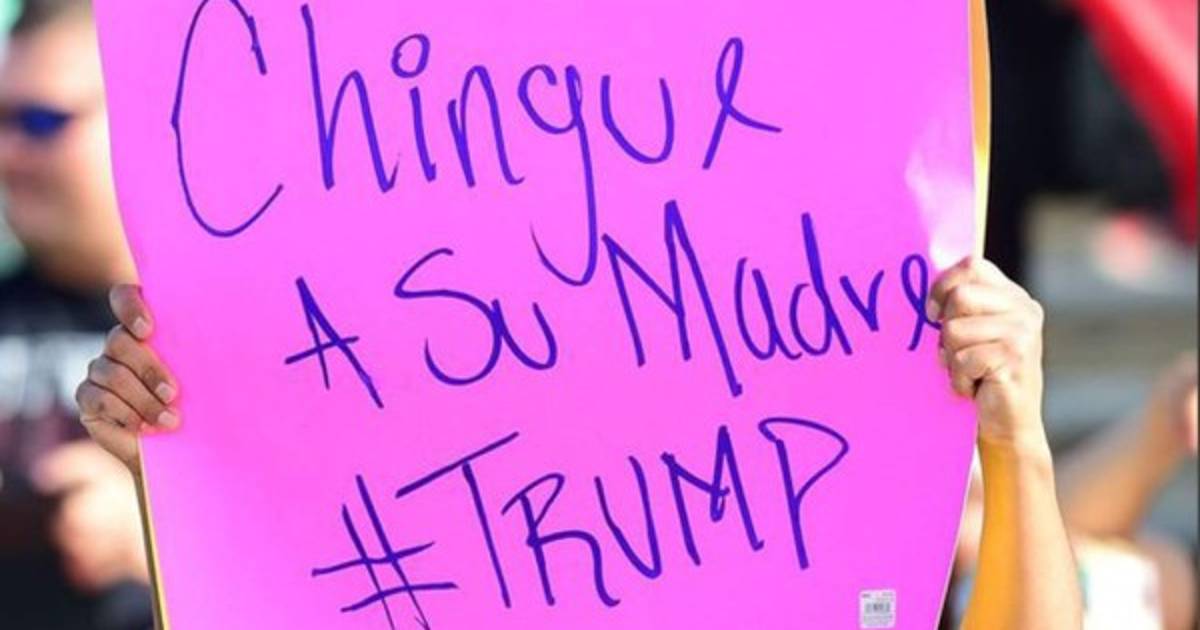 Chingue
A Su Madre
#TRUMP